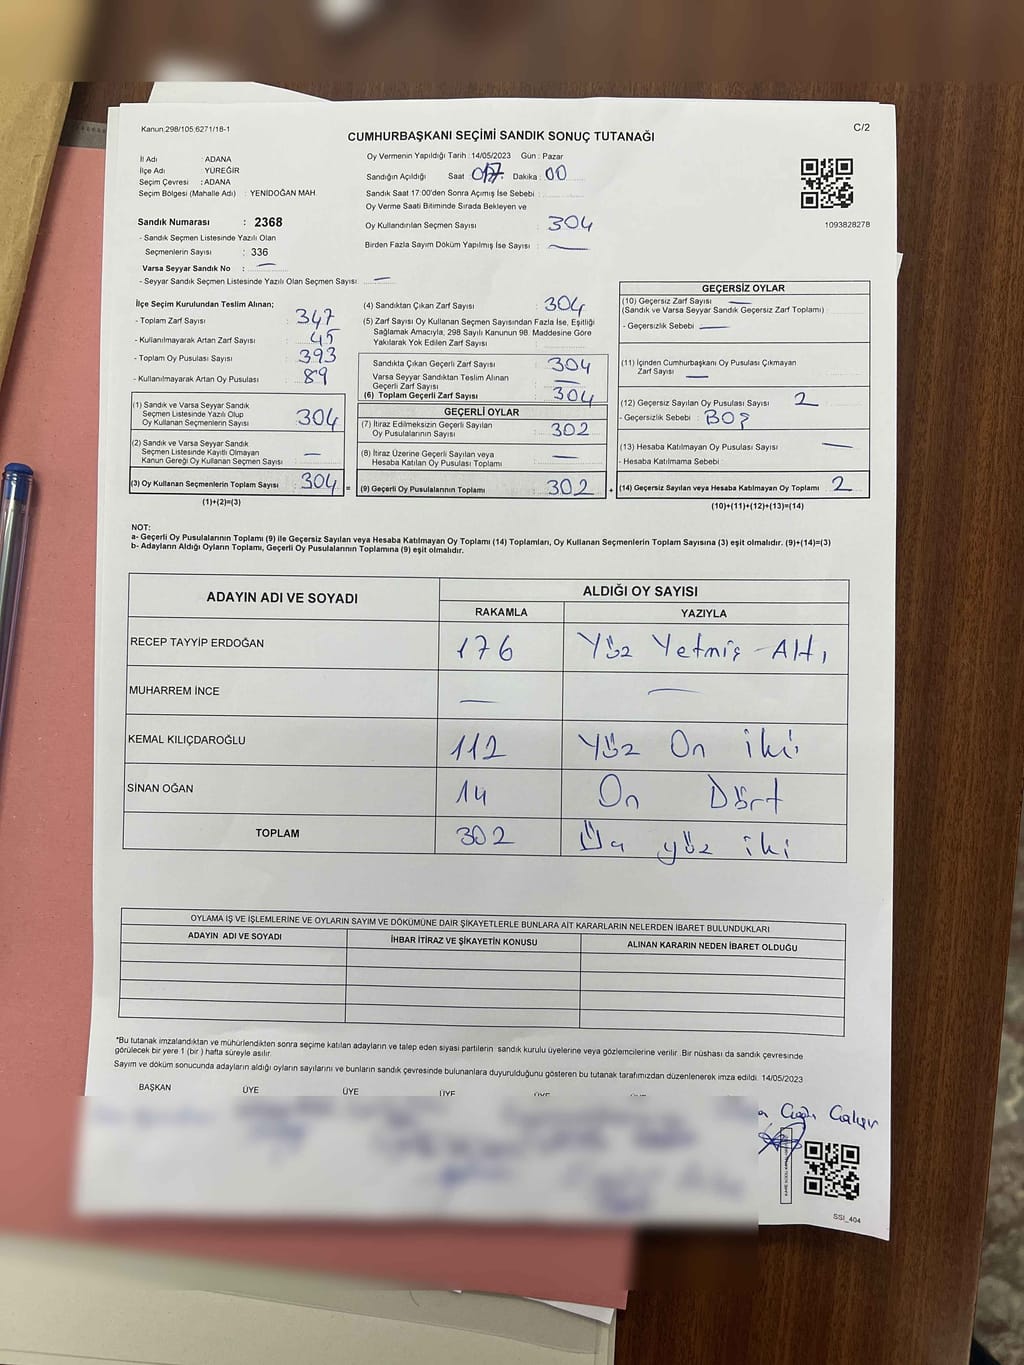 Kanun:298/105;6271/18-1
C/2
CUMHURBAŞKANI SEÇİMİ SANDIK SONUÇ TUTANAĞI
İl Adı : ADANA
İlçe Adı : YÜREĞİR
Seçim Çevresi : ADANA
Seçim Bölgesi (Mahalle Adı) : YENİDOĞAN MAH.
Sandık Numarası : 2368
- Sandık Seçmen Listesinde Yazılı Olan
Seçmenlerin Sayısı : 336
Varsa Seyyar Sandık No : —
- Seyyar Sandık Seçmen Listesinde Yazılı Olan Seçmen Sayısı: —
Oy Vermenin Yapıldığı Tarih :14/05/2023 Gün : Pazar
Sandığın Açıldığı Saat 017 Dakika : 00
Sandık Saat 17:00'den Sonra Açımış İse Sebebi :
Oy Verme Saati Bitiminde Sırada Bekleyen ve
Oy Kullandırılan Seçmen Sayısı : 304
Birden Fazla Sayım Döküm Yapılmış İse Sayısı : —
1093828278
İlçe Seçim Kurulundan Teslim Alınan;
- Toplam Zarf Sayısı : 347
- Kullanılmayarak Artan Zarf Sayısı : 45
- Toplam Oy Pusulası Sayısı : 393
- Kullanılmayarak Artan Oy Pusulası : 89
(1) Sandık ve Varsa Seyyar Sandık
Seçmen Listesinde Yazılı Olup
Oy Kullanan Seçmenlerin Sayısı : 304
(2) Sandık ve Varsa Seyyar Sandık
Seçmen Listesinde Kayıtlı Olmayan
Kanun Gereği Oy Kullanan Seçmen Sayısı : —
(3) Oy Kullanan Seçmenlerin Toplam Sayısı : 304 =
(1)+(2)=(3)
(4) Sandıktan Çıkan Zarf Sayısı : 304
(5) Zarf Sayısı Oy Kullanan Seçmen Sayısından Fazla İse, Eşitliği
Sağlamak Amacıyla, 298 Sayılı Kanunun 98. Maddesine Göre
Yakılarak Yok Edilen Zarf Sayısı :
Sandıkta Çıkan Geçerli Zarf Sayısı : 304
Varsa Seyyar Sandıktan Teslim Alınan
Geçerli Zarf Sayısı : —
(6) Toplam Geçerli Zarf Sayısı : 304
GEÇERLİ OYLAR
(7) İtiraz Edilmeksizin Geçerli Sayılan
Oy Pusulalarının Sayısı : 302
(8) İtiraz Üzerine Geçerli Sayılan veya
Hesaba Katılan Oy Pusulası Toplamı : —
(9) Geçerli Oy Pusulalarının Toplamı : 302 +
GEÇERSİZ OYLAR
(10) Geçersiz Zarf Sayısı : —
(Sandık ve Varsa Seyyar Sandık Geçersiz Zarf Toplamı) :
- Geçersizlik Sebebi : —
(11) İçinden Cumhurbaşkanı Oy Pusulası Çıkmayan
Zarf Sayısı : —
(12) Geçersiz Sayılan Oy Pusulası Sayısı : 2
- Geçersizlik Sebebi : BOŞ
(13) Hesaba Katılmayan Oy Pusulası Sayısı : —
- Hesaba Katılmama Sebebi :
(14) Geçersiz Sayılan veya Hesaba Katılmayan Oy Toplamı : 2
(10)+(11)+(12)+(13)=(14)
NOT:
a- Geçerli Oy Pusulalarının Toplamı (9) ile Geçersiz Sayılan veya Hesaba Katılmayan Oy Toplamı (14) Toplamları, Oy Kullanan Seçmenlerin Toplam Sayısına (3) eşit olmalıdır. (9)+(14)=(3)
b- Adayların Aldığı Oyların Toplamı, Geçerli Oy Pusulalarının Toplamına (9) eşit olmalıdır.
ADAYIN ADI VE SOYADI
ALDIĞI OY SAYISI
RAKAMLA YAZIYLA
RECEP TAYYİP ERDOĞAN 176 Yüz Yetmiş-Altı
MUHARREM İNCE — —
KEMAL KILIÇDAROĞLU 112 Yüz On iki
SİNAN OĞAN 14 On Dört
TOPLAM 302 Üç yüz iki
OYLAMA İŞ VE İŞLEMLERİNE VE OYLARIN SAYIM VE DÖKÜMÜNE DAİR ŞİKAYETLERLE BUNLARA AİT KARARLARIN NELERDEN İBARET BULUNDUKLARI
ADAYIN ADI VE SOYADI İHBAR İTİRAZ VE ŞİKAYETİN KONUSU ALINAN KARARIN NEDEN İBARET OLDUĞU
*Bu tutanak imzalandıktan ve mühürlendikten sonra seçime katılan adayların ve talep eden siyasi partilerin sandık kurulu üyelerine veya gözlemcilerine verilir. Bir nüshası da sandık çevresinde
görülecek bir yere 1 (bir) hafta süreyle asılır.
Sayım ve döküm sonucunda adayların aldığı oyların sayılarını ve bunların sandık çevresinde bulunanlara duyurulduğunu gösteren bu tutanak tarafımızdan düzenlenerek imza edildi. 14/05/2023
BAŞKAN ÜYE ÜYE ÜYE ÜYE ÜYE
SSI_404